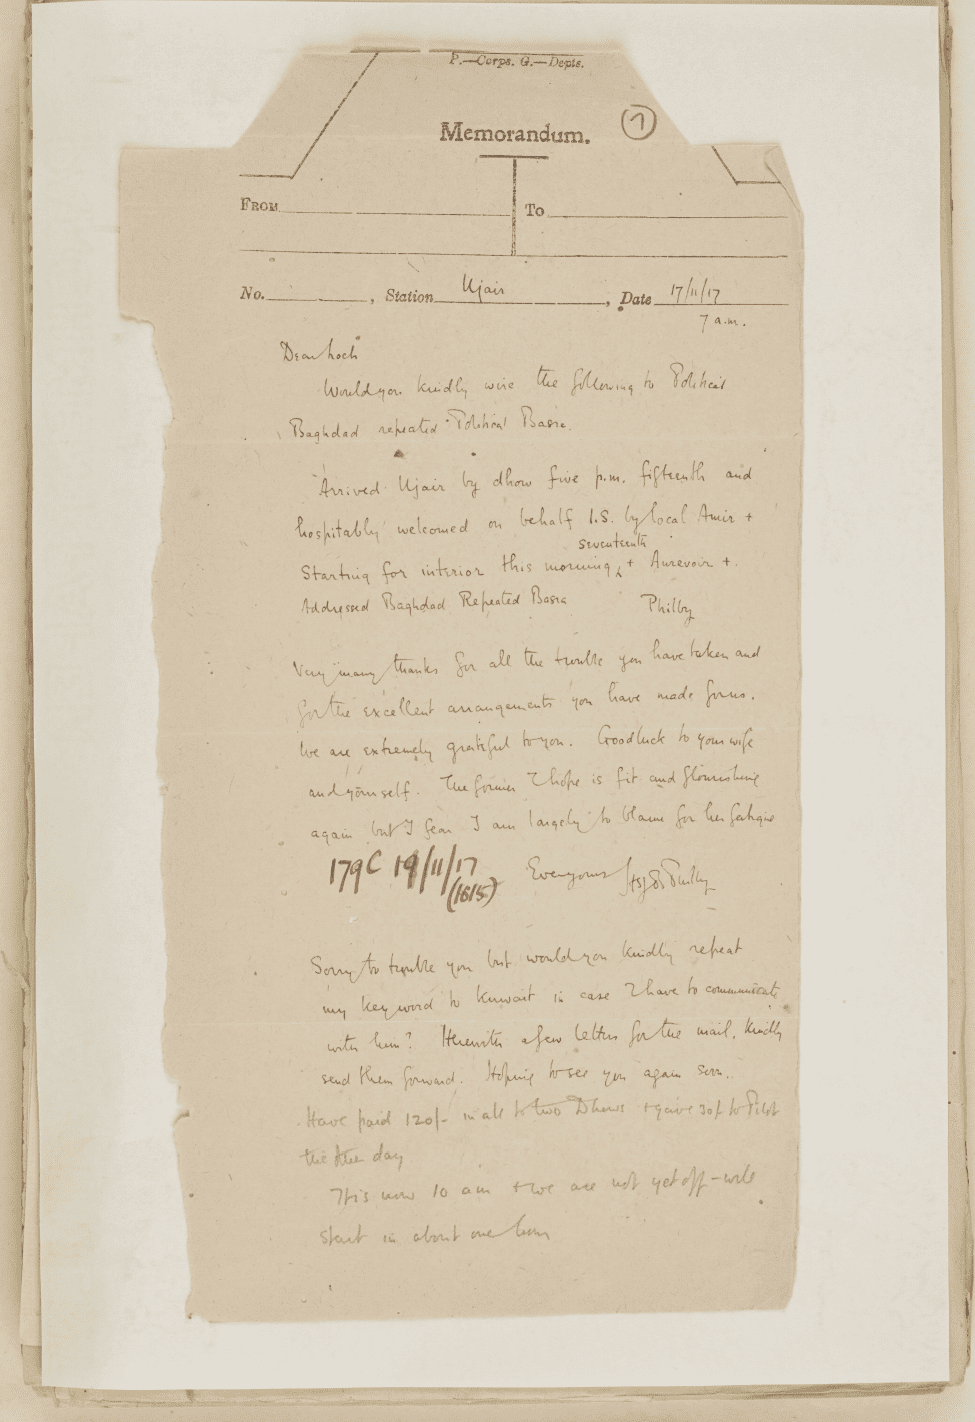 P.—Corps. G.—Depts.
Memorandum.
7
FROM
To
No. , Station Ujair , Date 17/11/17
7 a.m.
Dear Loch
Would you kindly wire the following to Political
Baghdad repeated Political Basra.
Arrived Ujair by dhow five p.m. fifteenth and
hospitably welcomed on behalf I.S. by local Amir +
seventeenth
Starting for interior this morning + Aurevoir +.
Addressed Baghdad Repeated Basra Philby
Very many thanks for all the trouble you have taken and
for the excellent arrangements you have made for us.
We are extremely grateful to you. Good luck to your wife
and yourself. The former I hope is fit and flourishing
again but I fear I am largely to blame for her fatigue
179C 19/11/17
(1615)
Ever yours HStJB Philby
Sorry to trouble you but would you kindly repeat
my key word to Kuwait in case I have to communicate
with him? Herewith a few letters for the mail, kindly
send them forward. Hoping to see you again soon.
Have paid 120/- in all to two Dhows + gave 30/- to Pilot
the other day
It is now 10 am + we are not yet off - will
start in about one hour